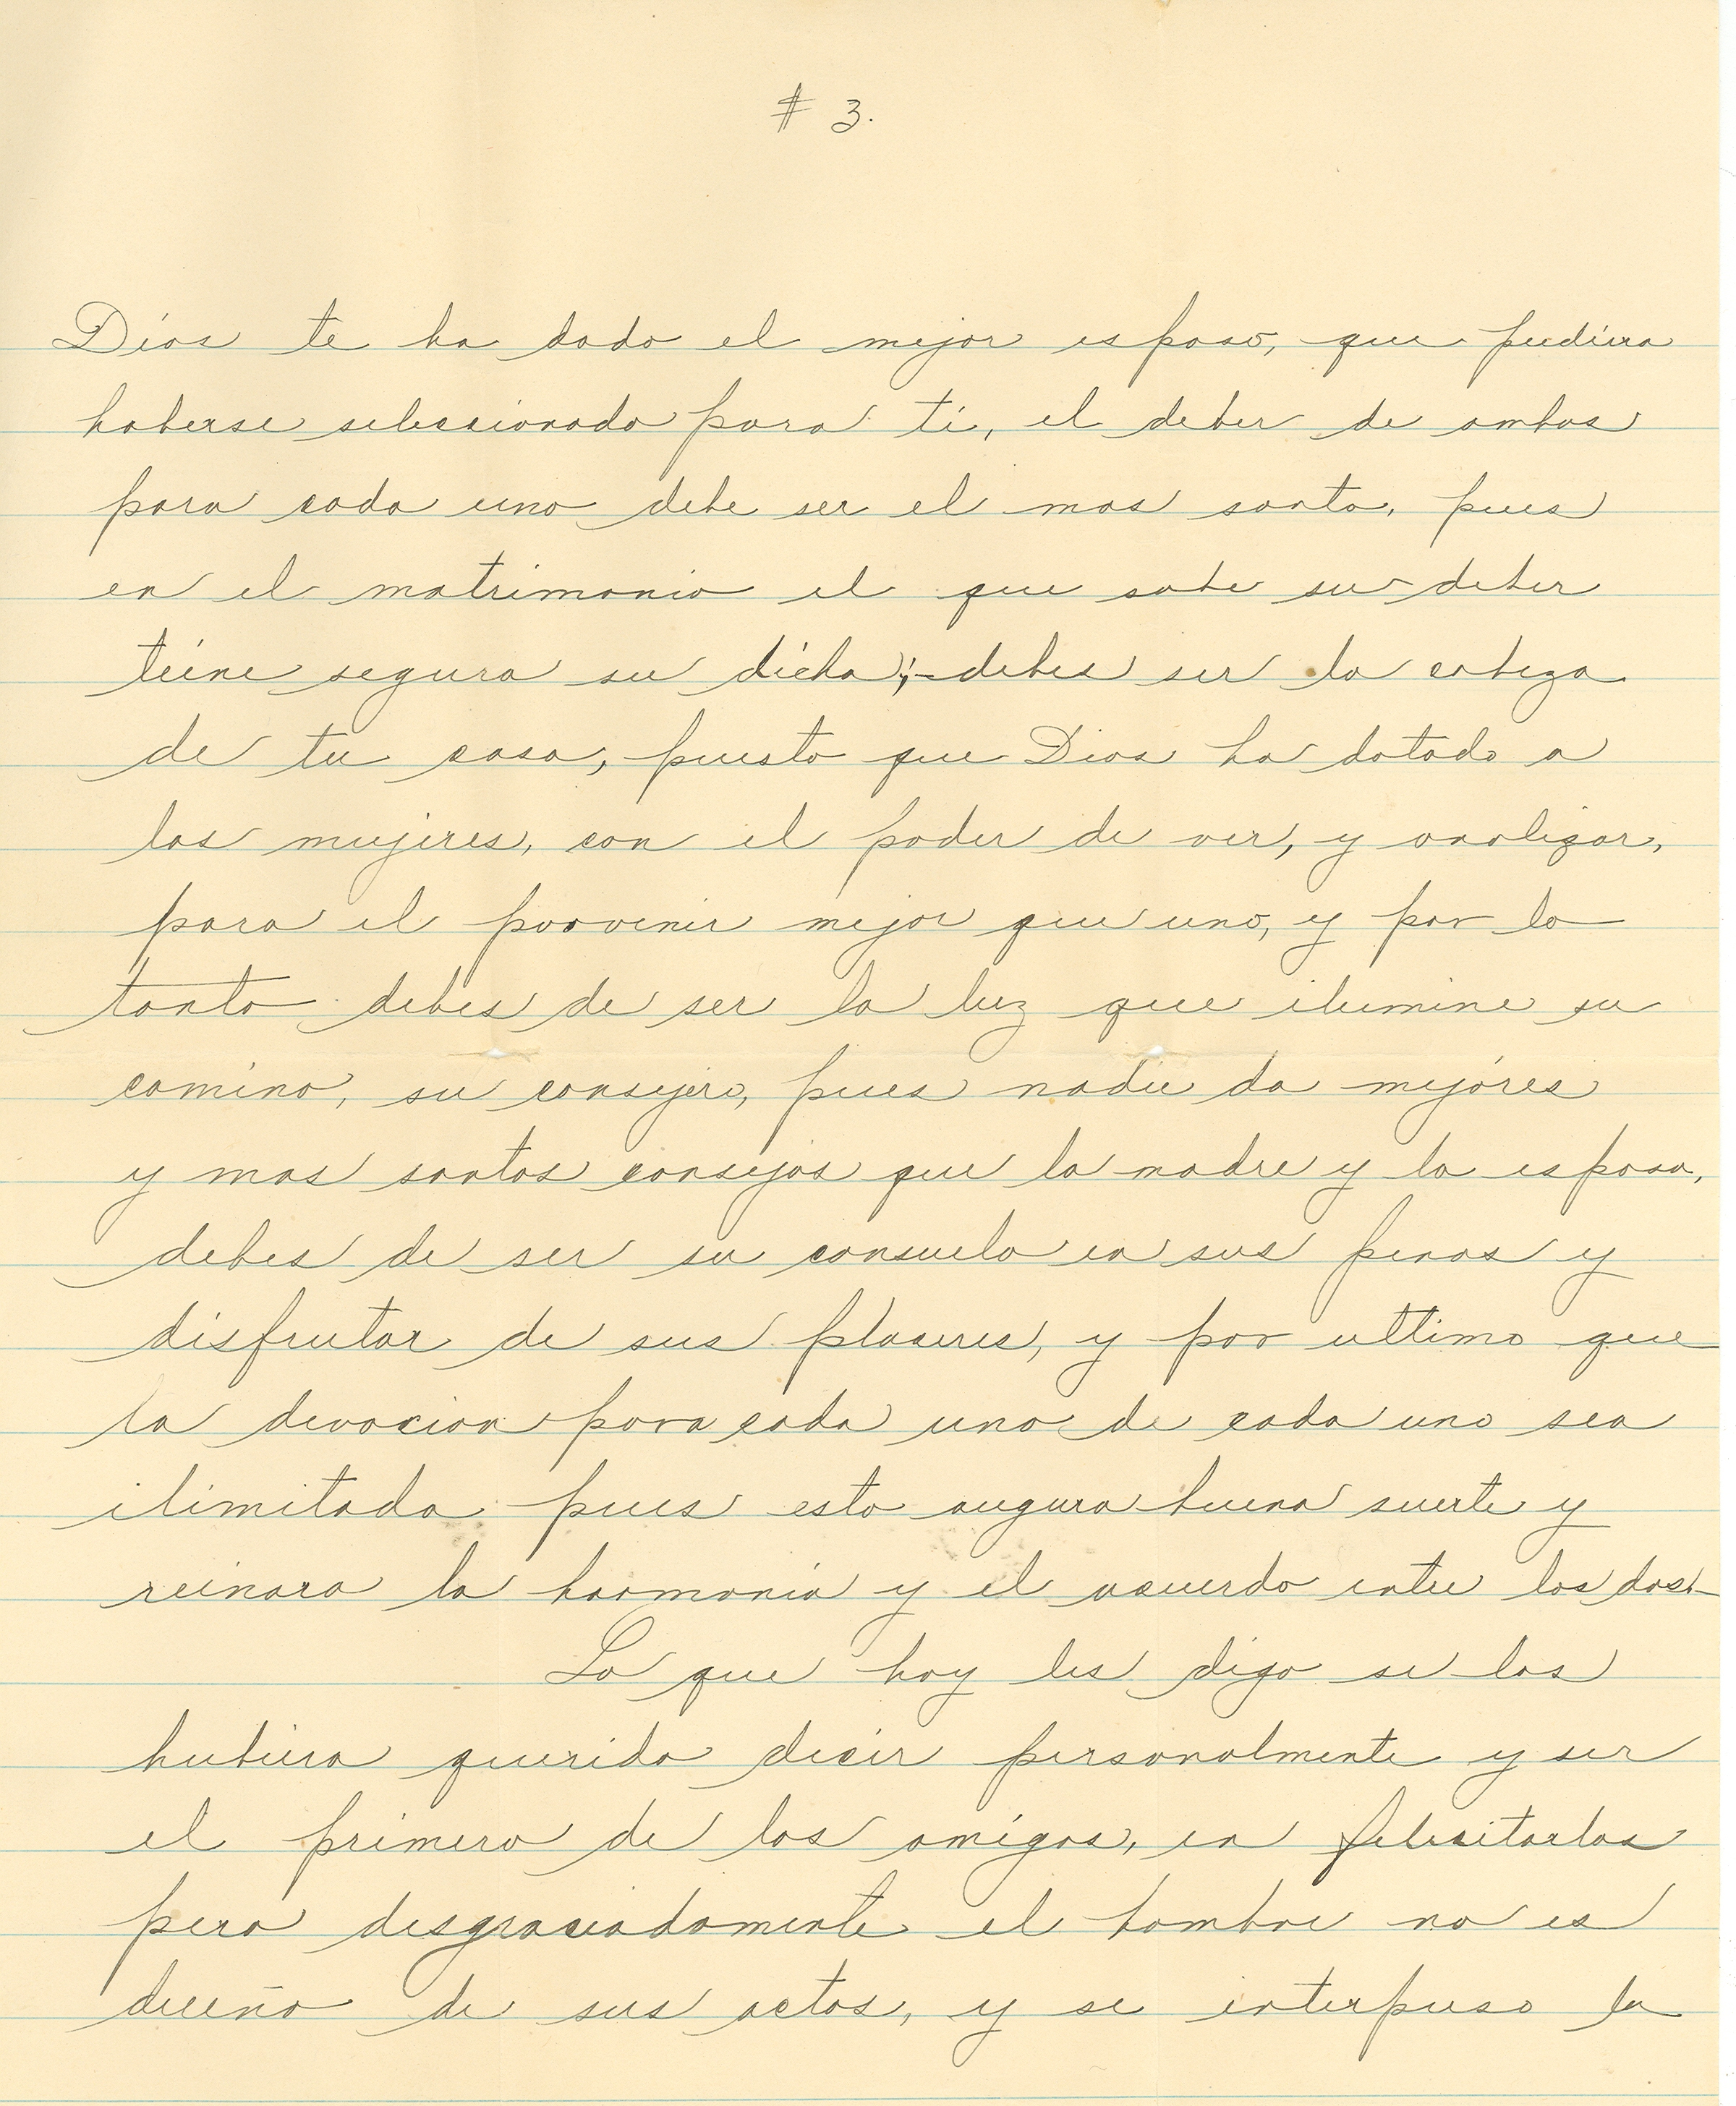 # 3.
Dios te ha dado el mejor esposo, que pudiera
haberse seleccionado para ti, el deber de ambos
para cada uno debe ser el mas santo, pues
en el matrimonio el que sabe su deber
teine segura su dicha;- debes ser la cabeza
de tu casa, puesto que Dios ha dotado a
las mujeres, con el poder de ver, y analizar,
para el porvenir mejor que uno, y por lo
tanto debes de ser la luz que ilumine su
camino, su consejero, pues nadie da mejores
y mas santos consejos que la madre y la esposa,
debes de ser su consuelo en sus penas y
disfrutar de sus placeres, y por ultimo que
la devocion para cada uno de cada uno sea
ilimitada pues esto augura buena suerte y
reinara la harmonia y el acuerdo entre los dos.-
Lo que hoy les digo se los
hubiera querido decir personalmente y ser
el primero de los amigos, en felicitarlos
pero desgraciadamente el hombre no es
dueño de sus actos, y se interpuso la